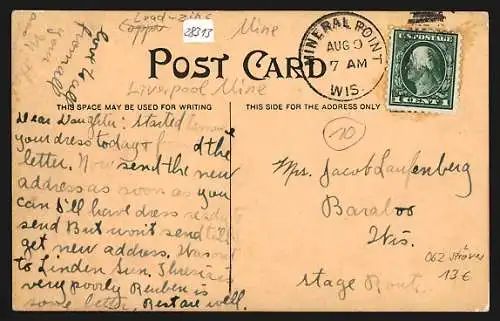 Lead-zinc
copper
28313
Mine
Liverpool Mine
POST CARD
THIS SPACE MAY BE USED FOR WRITING
THIS SIDE FOR THE ADDRESS
MINERAL POINT
AUG 9
7 AM
WIS.
U.S. POSTAGE
1 CENT 1
10
Dear Daughter: Started
your dress today & found the
letter. Now send the new
address as soon as you
can I'll have dress ready to
send But won't send till I
get new address. Was out
to Linden Sun. Thresie is
very poorly Reuben is
some better. Rest are well.
love to all
from all
Mrs. Jacob Laufenberg
Baraboo
Wis.
Stage Rout.
062
13€